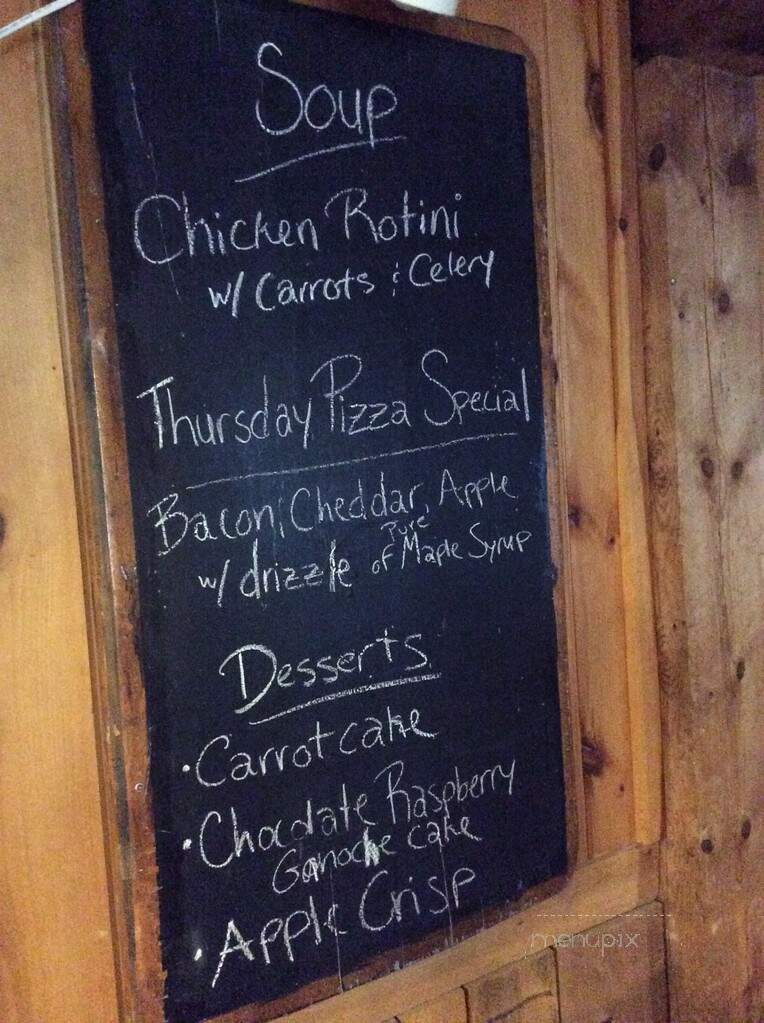 Soup
Chicken Rotini
w/ Carrots & Celery
Thursday Pizza Special
Bacon, Cheddar, Apple
w/ drizzle of Pure Maple Syrup
Desserts
• Carrot cake
• Chocolate Raspberry
Ganache cake
• Apple Crisp
menupix